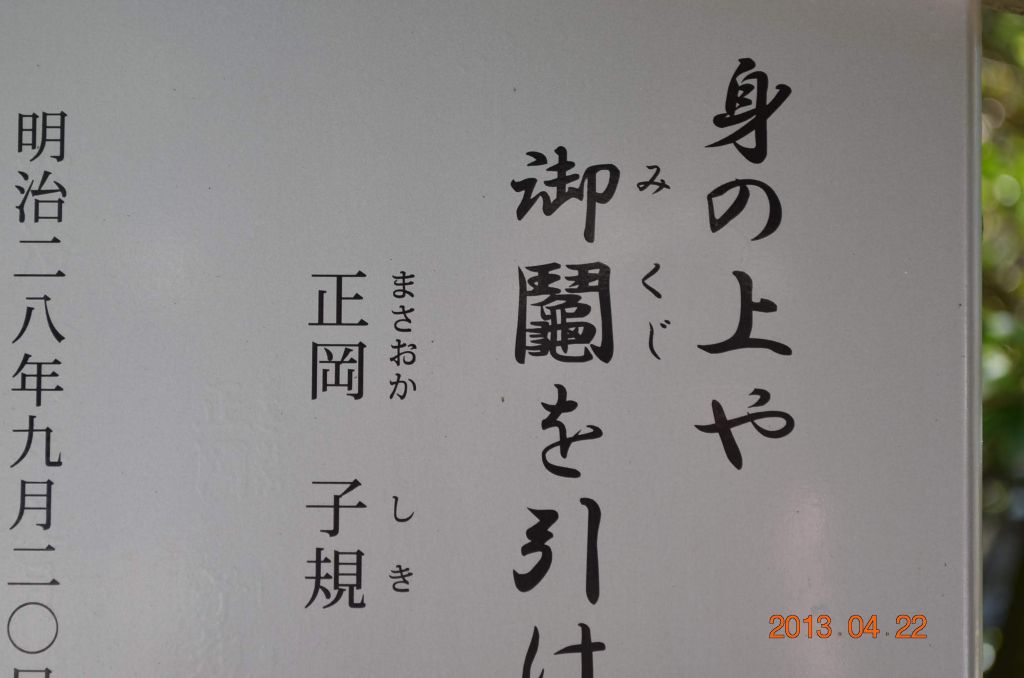 身の上や
御鬮を引けは
みくじ
正岡 子規
まさおか しき
明治二八年九月二〇日
2013.04.22